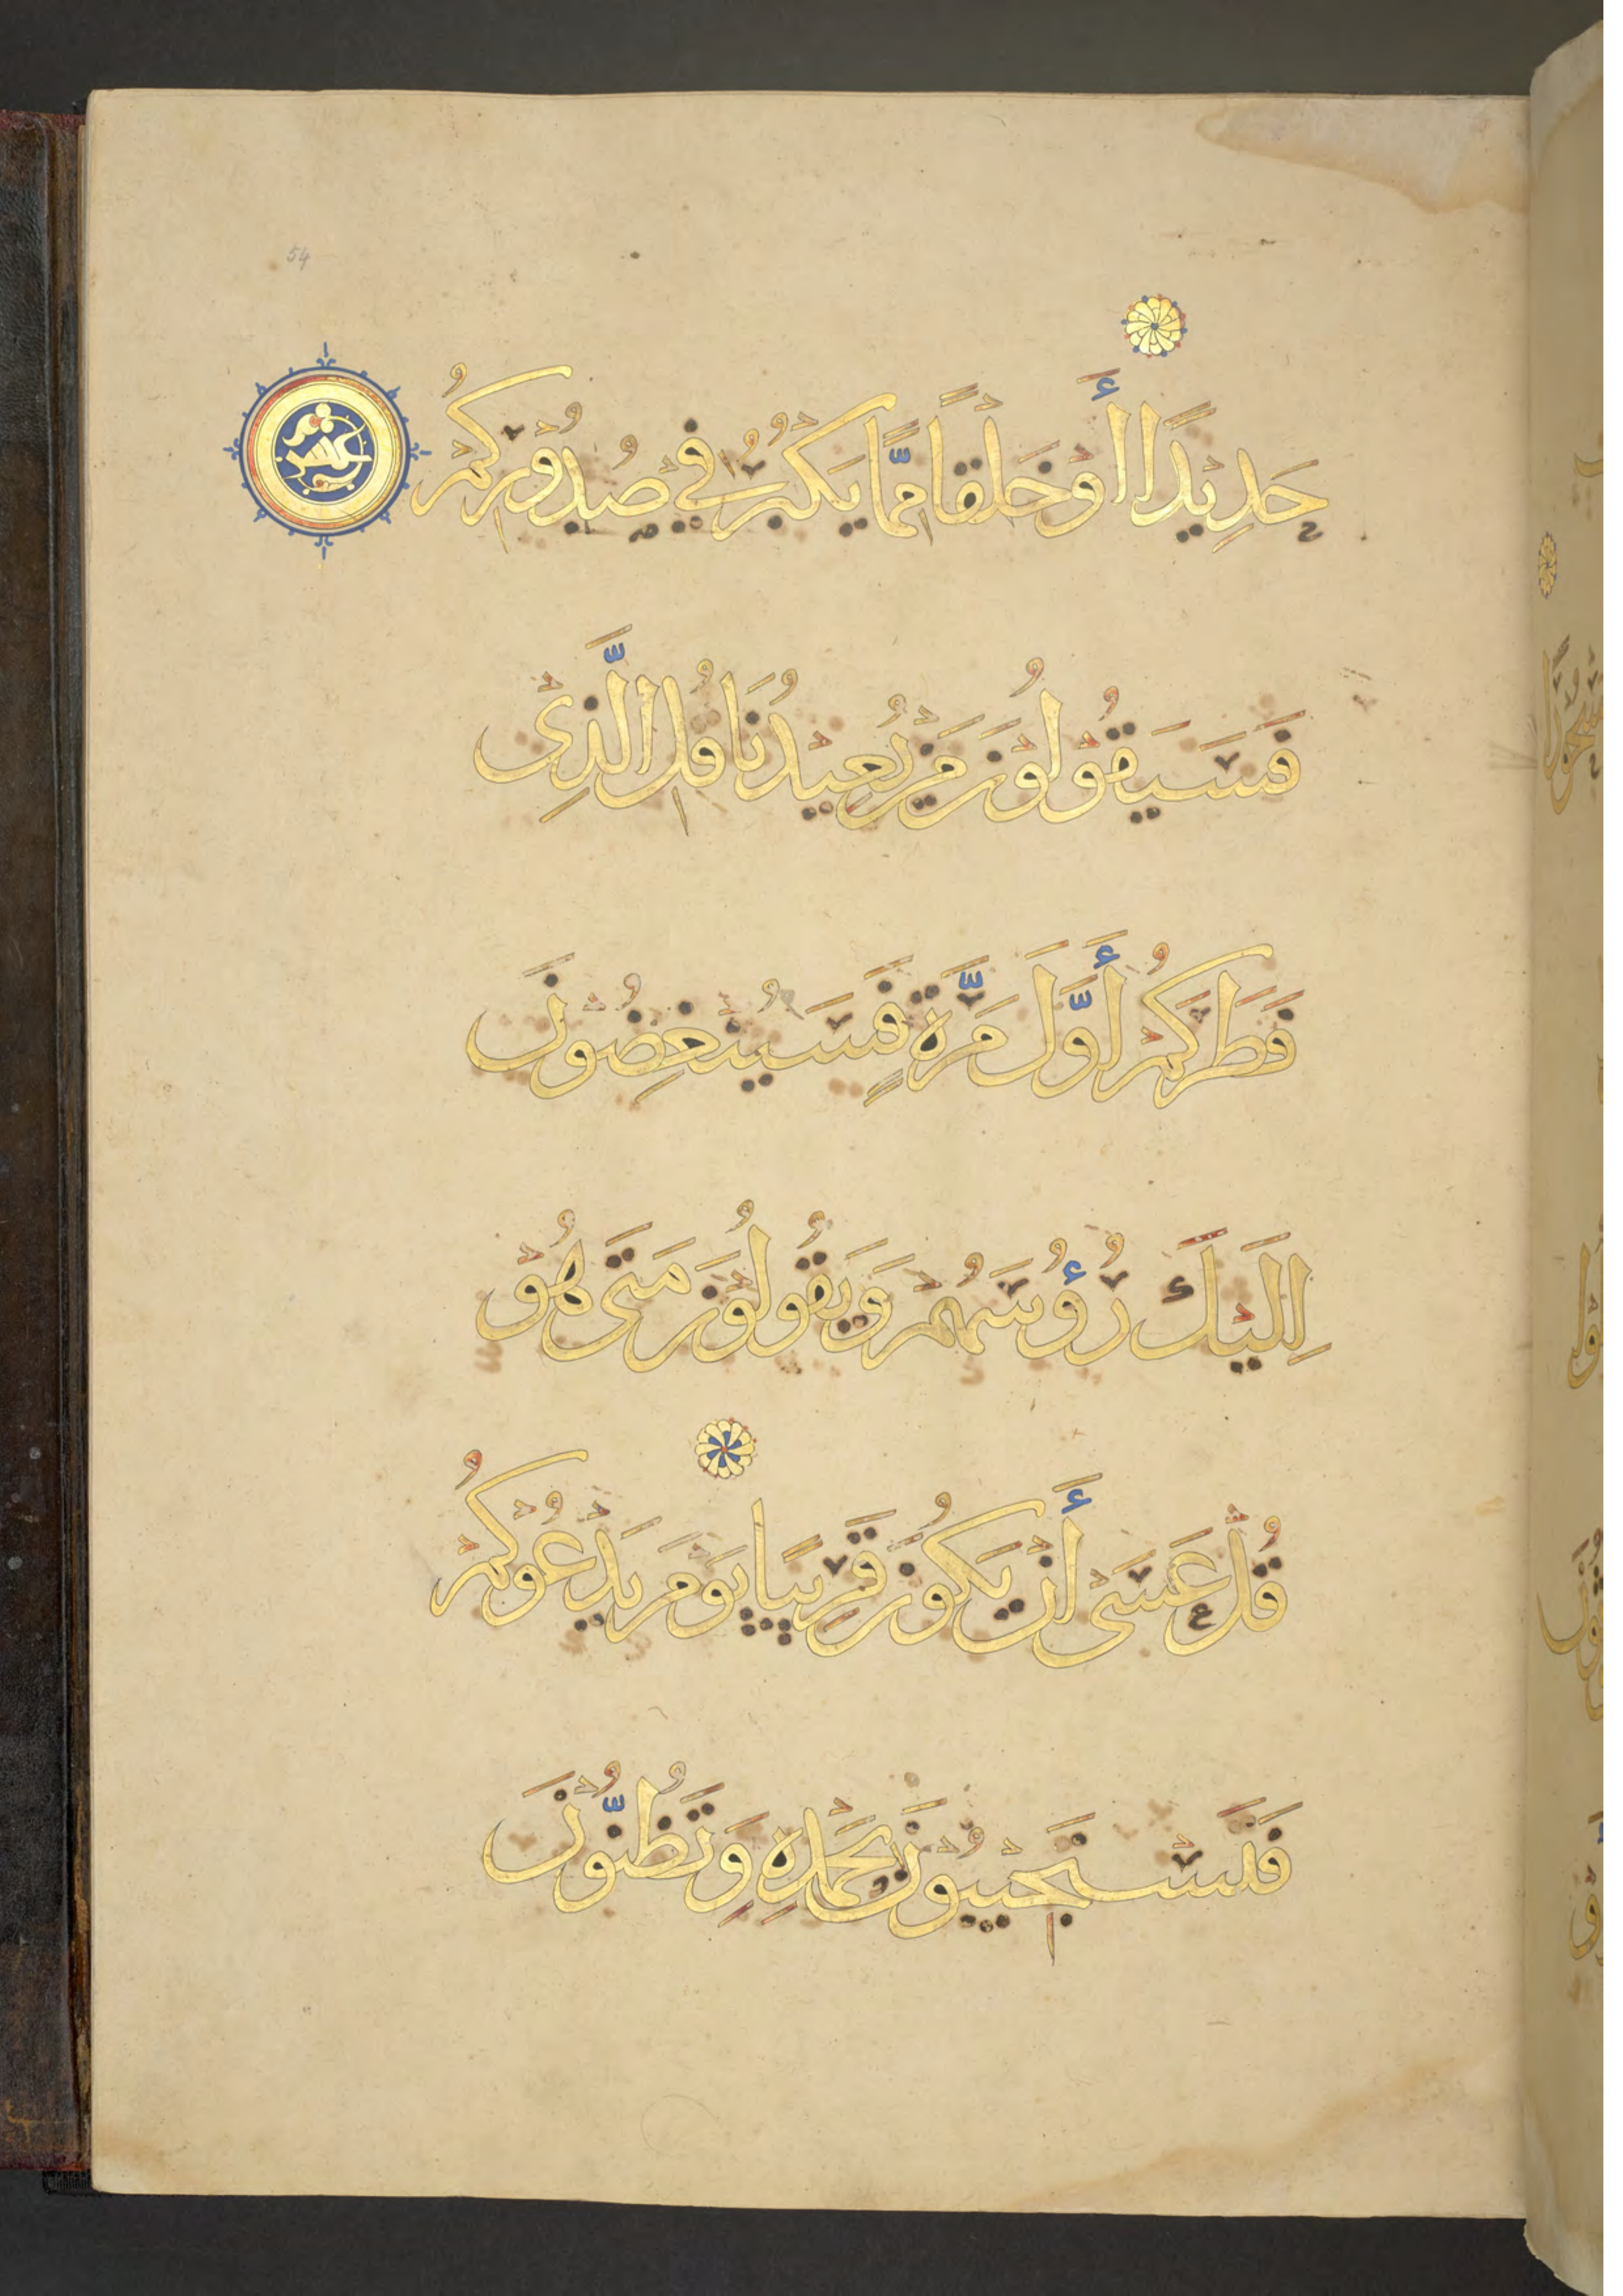 54
حَدِيْدًا أَوْ خَلْقًا مِمَّا يَكْبُرُ فِيْ صُدُوْرِكُمْ
عشر
فَسَيَقُوْلُوْنَ مَنْ يُعِيْدُنَا قُلِ الَّذِيْ
فَطَرَكُمْ أَوَّلَ مَرَّةٍ فَسَيُنْغِضُوْنَ
اِلَيْكَ رُؤُسَهُمْ وَيَقُوْلُوْنَ مَتَى هُوْ
قُلْ عَسَىْ أَنْ يَكُوْنَ قَرِيْبًا يَوْمَ يَدْعُوْكُمْ
فَتَسْتَجِيْبُوْنَ بِحَمْدِهِ وَتَظُنُّوْنَ